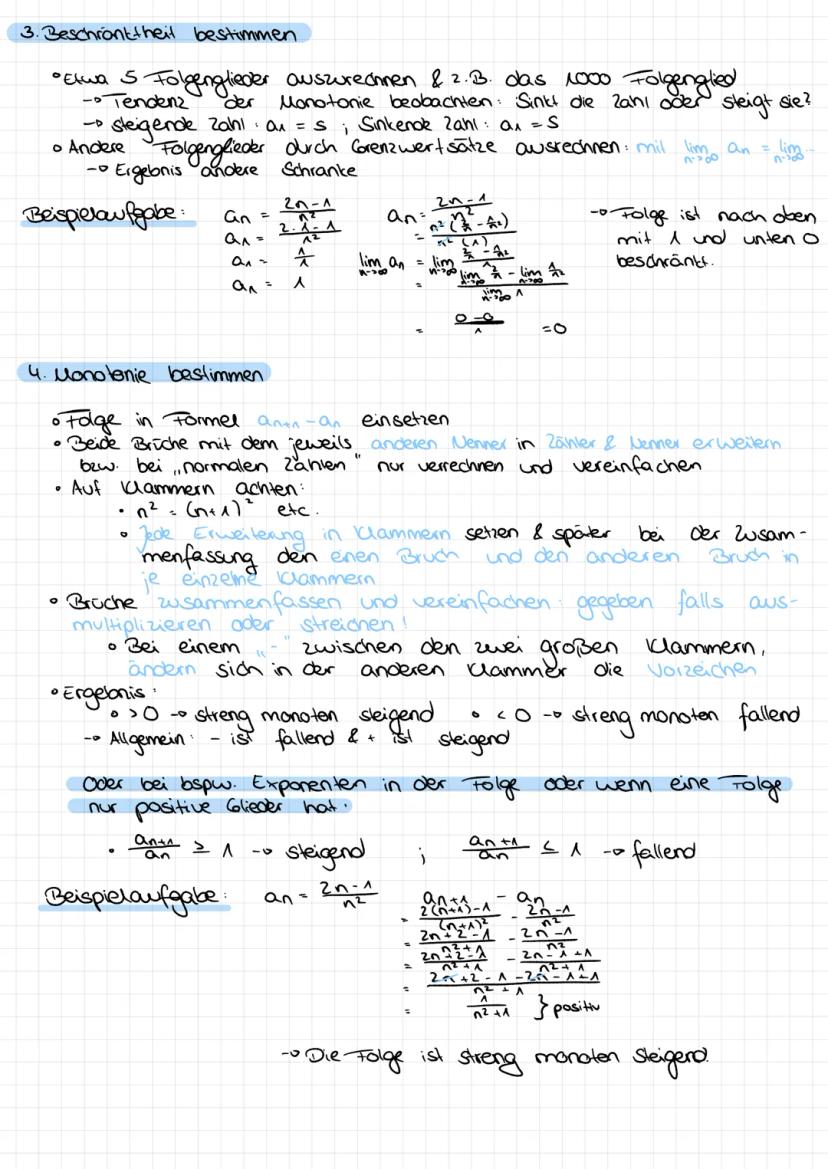 3. Beschränktheit bestimmen
• Etwa 5 Folgenglieder auszurechnen & z.B. das 1000 Folgenglied
→ Tendenz der Monotonie beobachten: Sinkt die Zahl oder steigt sie?
→ steigende Zahl: a1 = s ; Sinkende Zahl: a1 = S
• Andere Folgenglieder durch Grenzwertsätze ausrechnen: mit lim n→∞ an = lim n→∞ ...
→ Ergebnis andere Schranke
Beispielaufgabe: an = (2n-1)/n²
a1 = (2·1-1)/1²
a1 = 1/1
a1 = 1
an = (2n-1)/n²
= n²(2/n - 1/n²)/n²(1)
lim n→∞ an = lim n→∞ (2/n - 1/n²)/1
= (lim n→∞ 2/n - lim n→∞ 1/n²)/(lim n→∞ 1)
= (0-0)/1 = 0
→ Folge ist nach oben
mit 1 und unten 0
beschränkt.
4. Monotonie bestimmen
• Folge in Formel an+1 - an einsetzen
• Beide Brüche mit dem jeweils anderen Nenner in Zähler & Nenner erweitern
bzw. bei „normalen Zahlen" nur verrechnen und vereinfachen
• Auf Klammern achten:
• n² = (n+1)² etc.
• Jede Erweiterung in Klammern setzen & später bei der Zusam-
menfassung den einen Bruch und den anderen Bruch in
je einzelne Klammern
• Brüche zusammenfassen und vereinfachen: gegeben falls aus-
multiplizieren oder streichen!
• Bei einem „-" zwischen den zwei großen Klammern,
ändern sich in der anderen Klammer die Vorzeichen
• Ergebnis:
• >0 → streng monoton steigend • <0 → streng monoton fallend
→ Allgemein: - ist fallend & + ist steigend
Oder bei bspw. Exponenten in der Folge oder wenn eine Folge
nur positive Glieder hat:
• an+1/an ≥ 1 → steigend ; an+1/an ≤ 1 → fallend
Beispielaufgabe: an = (2n-1)/n²
an+1 - an
= (2(n+1)-1)/(n+1)² - (2n-1)/n²
= (2n+2-1)/(n²+1) - (2n-1)/n²
= (2n+2-1)/(n²+1) - (2n-1+1)/(n²+1)
= (2n+2-1-2n-1+1)/(n²+1)
= 1/(n²+1) } positiv
→ Die Folge ist streng monoton steigend.